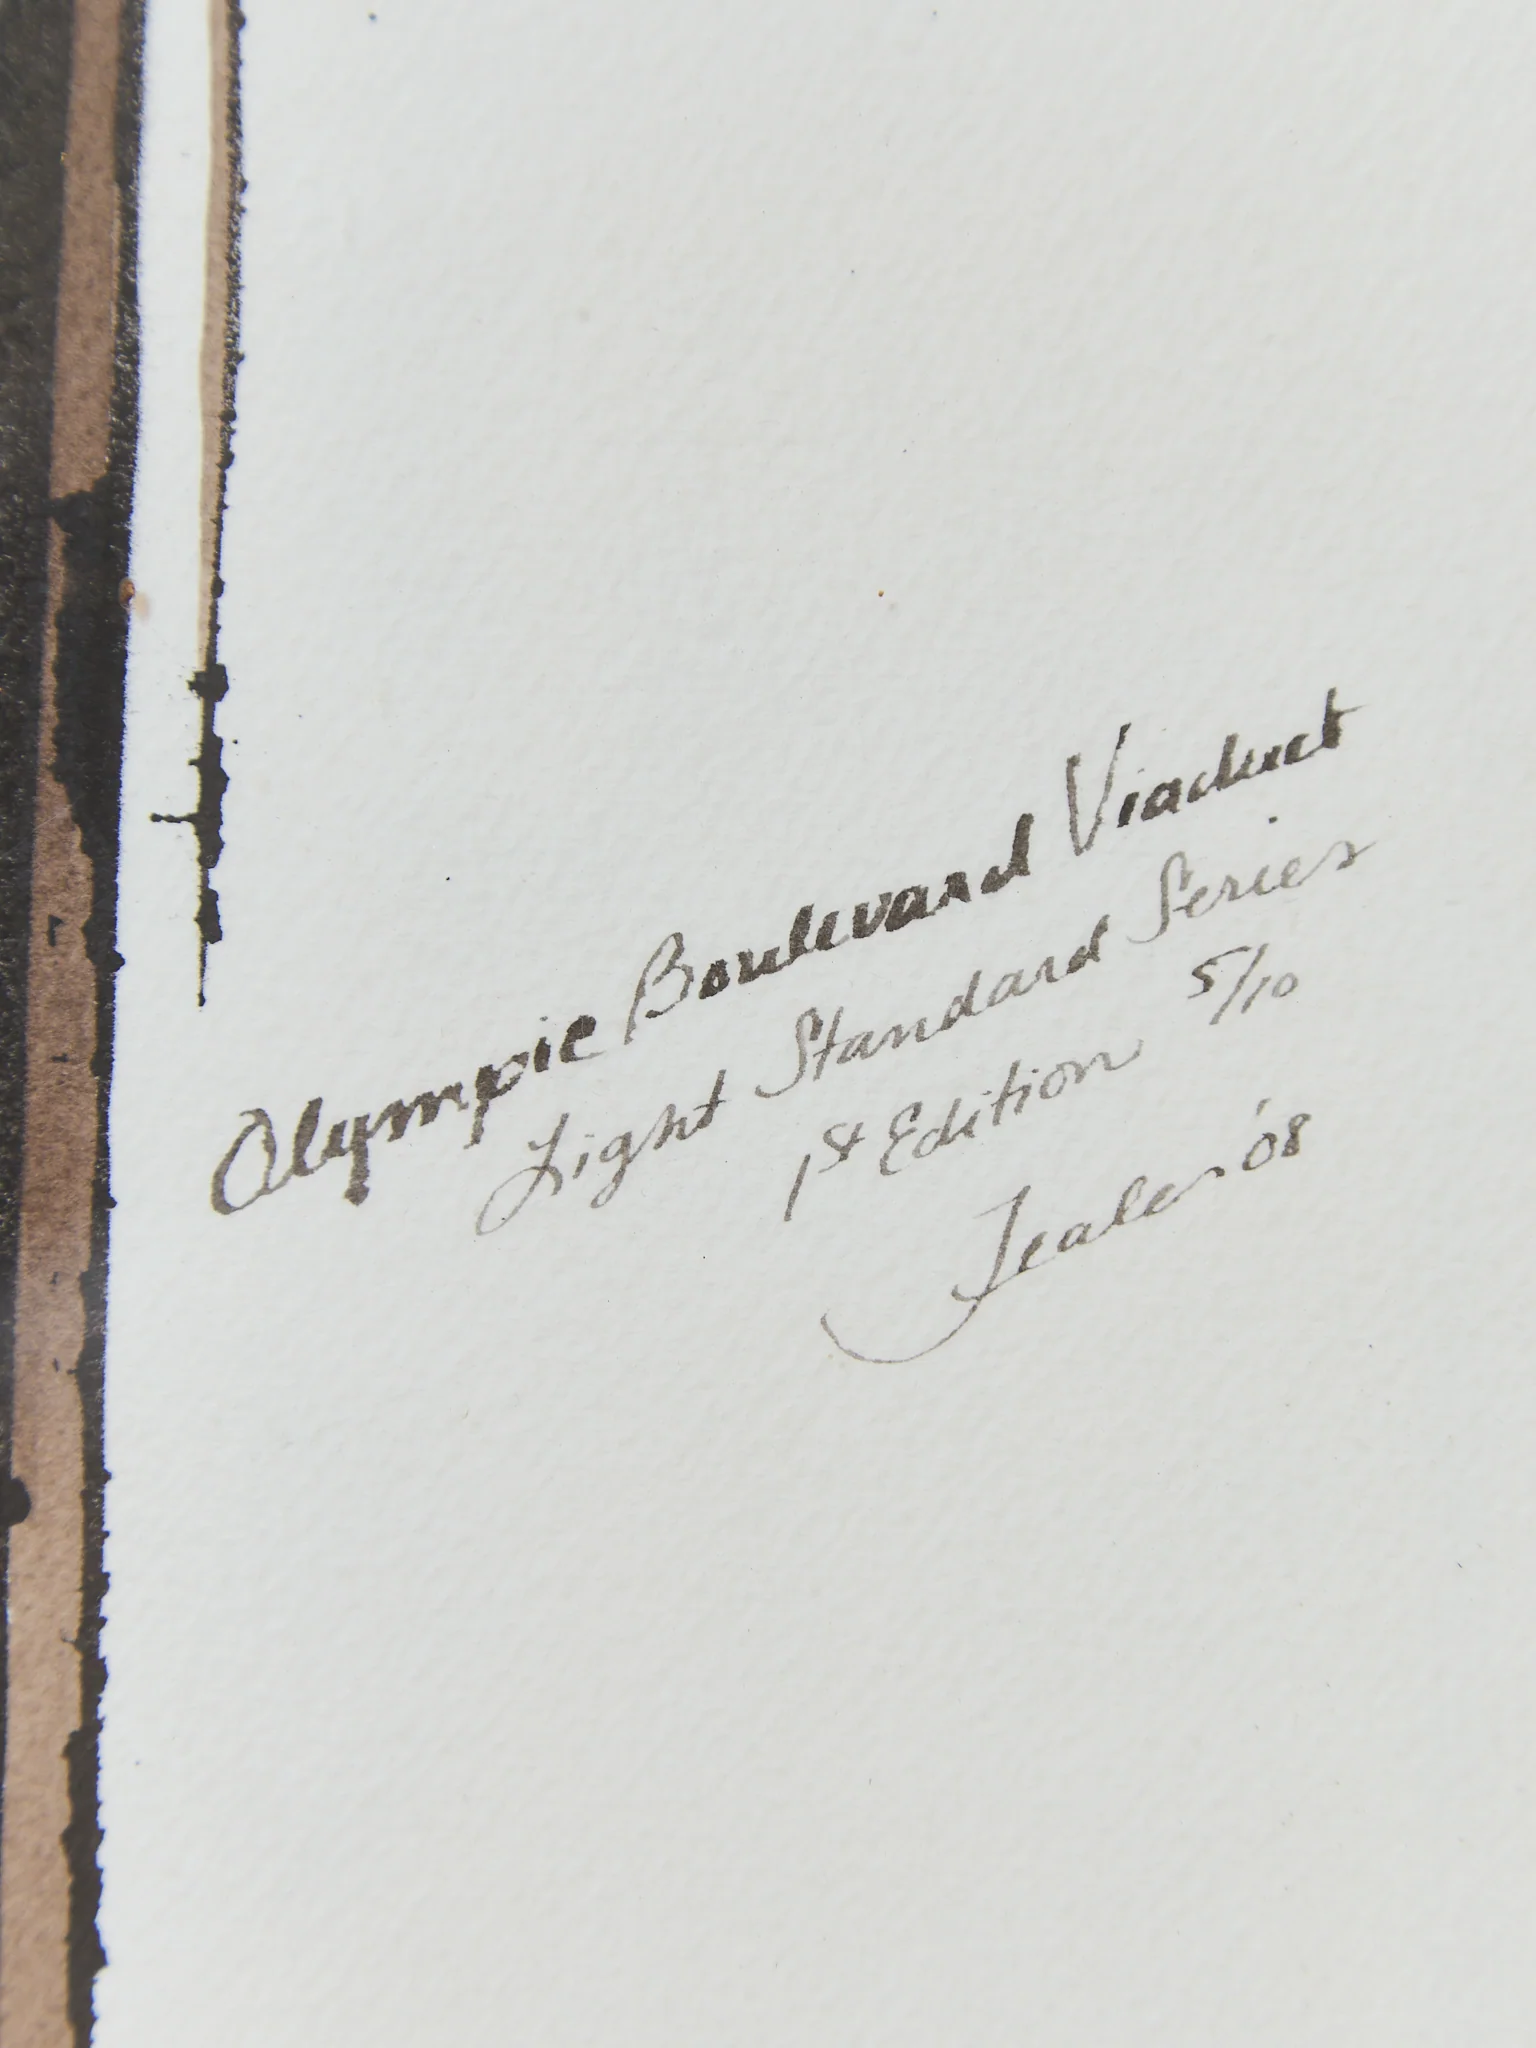 Olympic Boulevard Viaduct
Light Standard Series
1st Edition 5/10
Teale '08